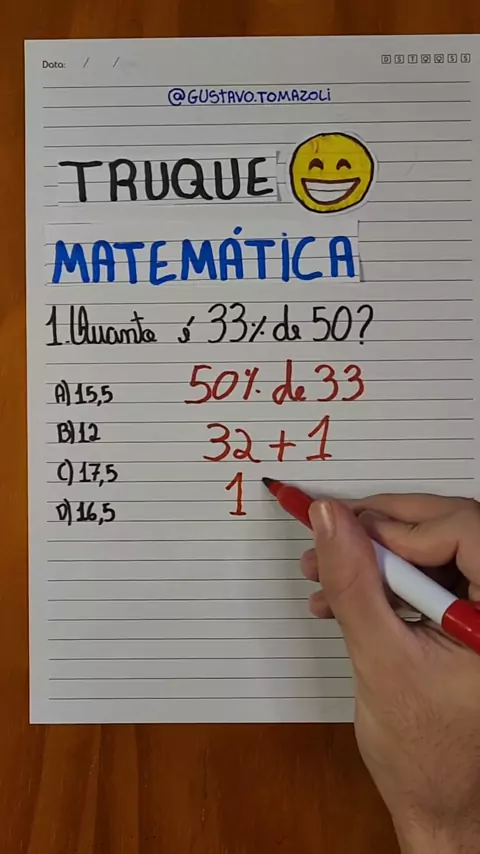 Data: / /
D S T Q Q S S
@GUSTAVO.TOMAZOLI
TRUQUE
MATEMÁTICA
1. Quanto é 33% de 50?
A) 15,5
50% de 33
B) 12
32 + 1
C) 17,5
1
D) 16,5